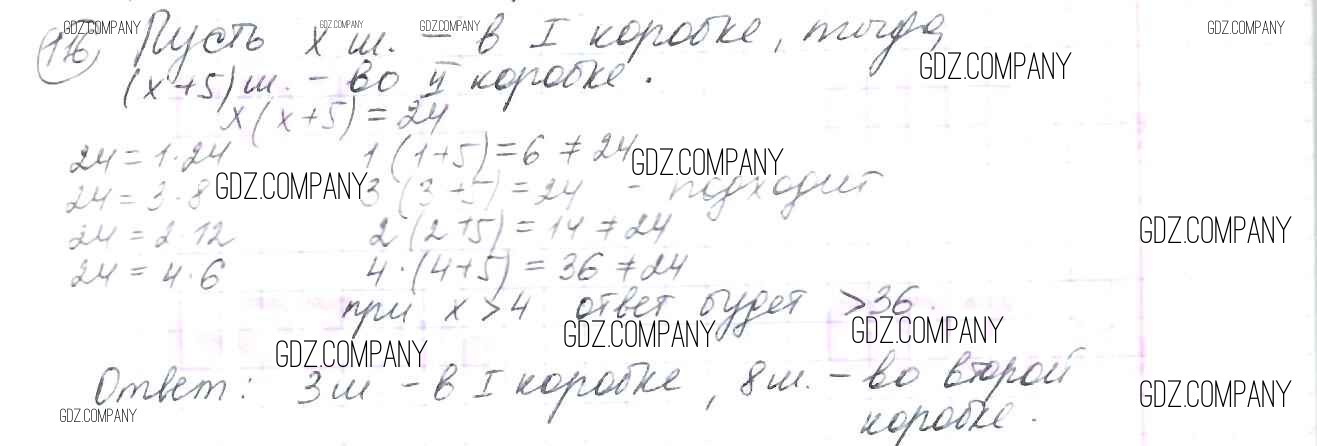 116 Пусть х ш. – в I коробке, тогда
(х+5) ш. – во II коробке.
х(х+5)=24
24=1·24 1(1+5)=6≠24
24=3·8 3(3+5)=24 – подходит
24=2·12 2(2+5)=14≠24
24=4·6 4·(4+5)=36≠24
при х>4 ответ будет >36.
Ответ: 3 ш – в I коробке, 8 ш. – во второй
коробке.
GDZ.COMPANY
GDZ.COMPANY
GDZ.COMPANY
GDZ.COMPANY
GDZ.COMPANY
GDZ.COMPANY
GDZ.COMPANY
GDZ.COMPANY
GDZ.COMPANY
GDZ.COMPANY
GDZ.COMPANY
GDZ.COMPANY
GDZ.COMPANY